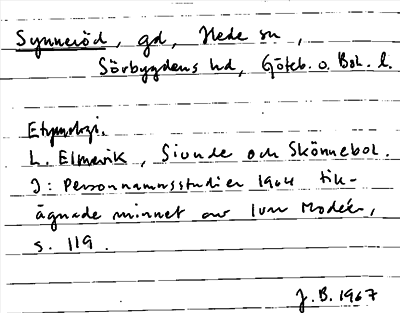 Synneröd, gd, Hede sn,
Sörbygdens hd, Göteb. o. Boh. l.
Etymologi.
L. Elmevik, Siunde och Skönnebol.
I: Personnamnsstudier 1964 till-
ägnade minnet av Ivar Modéer,
s. 119.
J. B. 1967